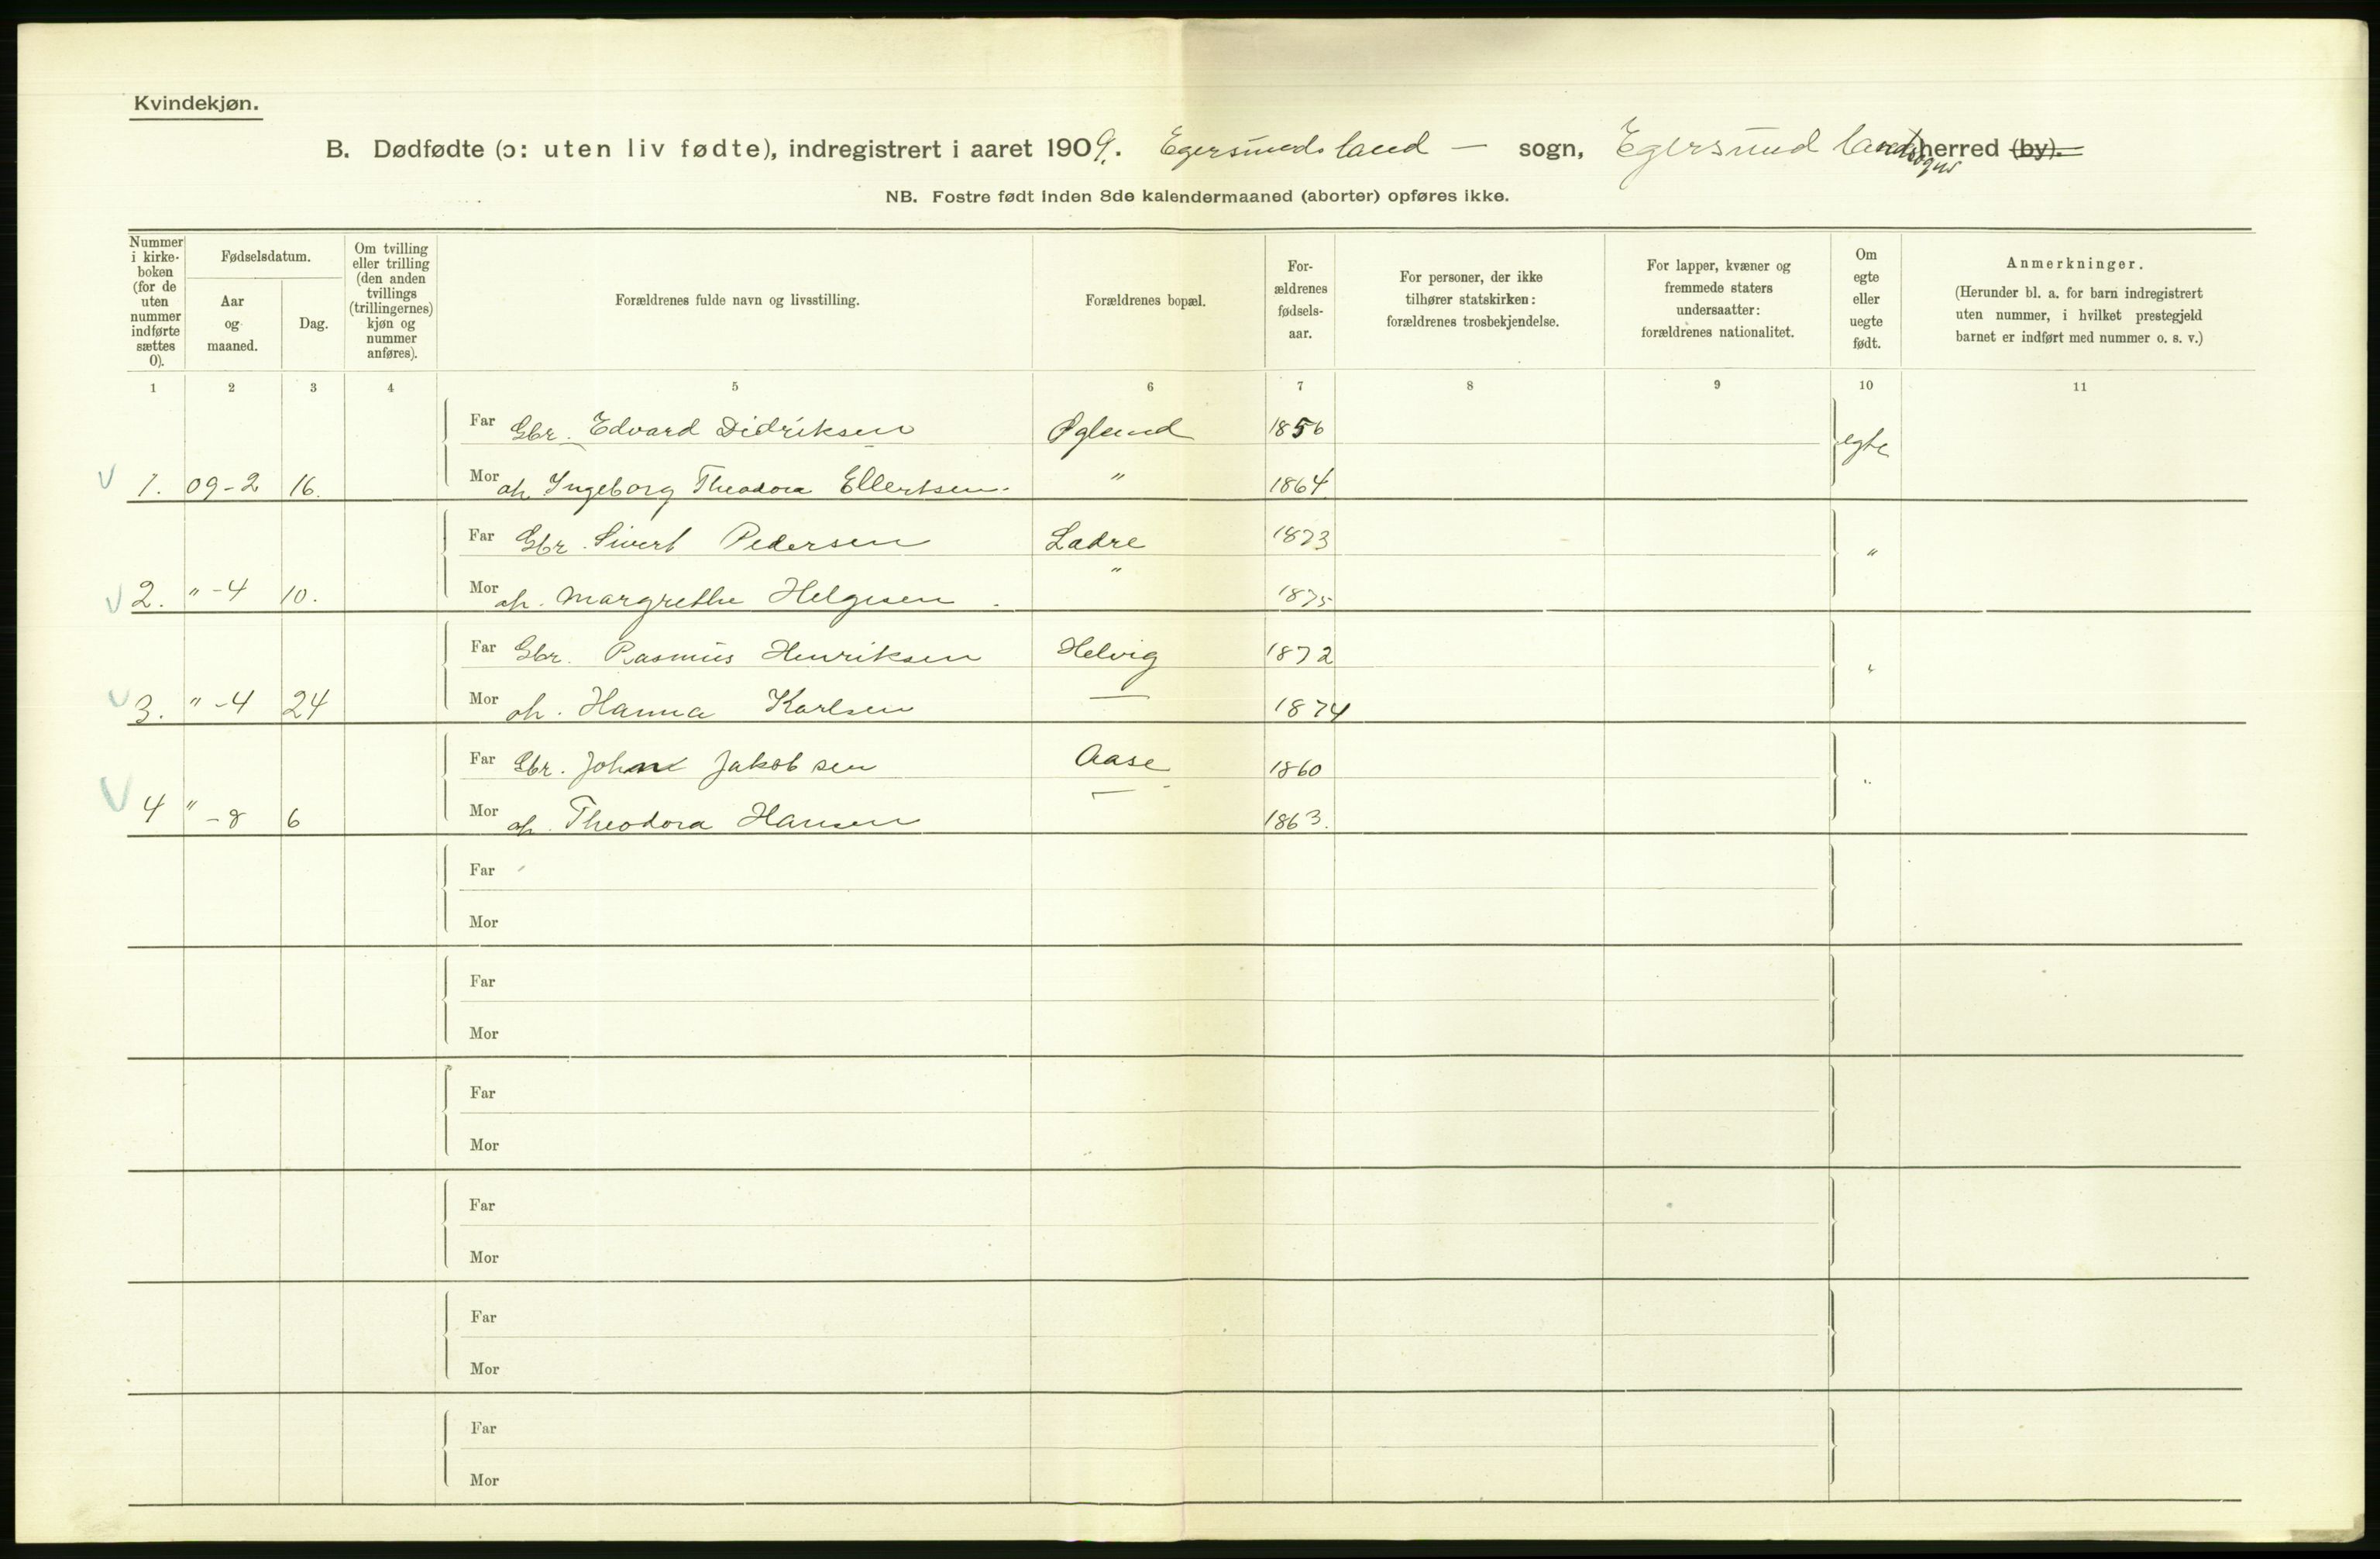 Kvindekjøn.
B. Dødfødte (ɔ: uten liv fødte), indregistrert i aaret 1909. Egersunds land — sogn, Egersund landsogns herred (by).
NB. Fostre født inden 8de kalendermaaned (aborter) opføres ikke.
Nummer i kirke- boken (for de uten nummer indførte sættes 0).
Fødselsdatum.
Aar og maaned.
Dag.
Om tvilling eller trilling (den anden tvillings (trillingernes) kjøn og nummer anføres).
Forældrenes fulde navn og livsstilling.
Forældrenes bopæl.
For- ældrenes fødsels- aar.
For personer, der ikke tilhører statskirken: forældrenes trosbekjendelse.
For lapper, kvæner og fremmede staters undersaatter: forældrenes nationalitet.
Om egte eller uegte født.
Anmerkninger.
(Herunder bl. a. for barn indregistrert uten nummer, i hvilket prestegjeld barnet er indført med nummer o. s. v.)
1 2 3 4 5 6 7 8 9 10 11
Far Gbr. Edvard Didriksen Øglend 1856 egte
V 1. 09-2 16. Mor Ingeborg Theodora Ellertsen. " 1864.
Far Gbr. Sivert Pedersen Ladre 1873 "
V 2. " -4 10. Mor Margrethe Helgesen. " 1875
Far Gbr. Rasmus Henriksen Helvig 1872 "
V 3. " -4 24 Mor Hanna Karlsen — 1874
Far Gbr. John Jakobsen Aase 1860 "
V 4 " -8 6 Mor Theodora Hansen — 1863.
Far
Mor
Far
Mor
Far
Mor
Far
Mor
Far
Mor
Far
Mor